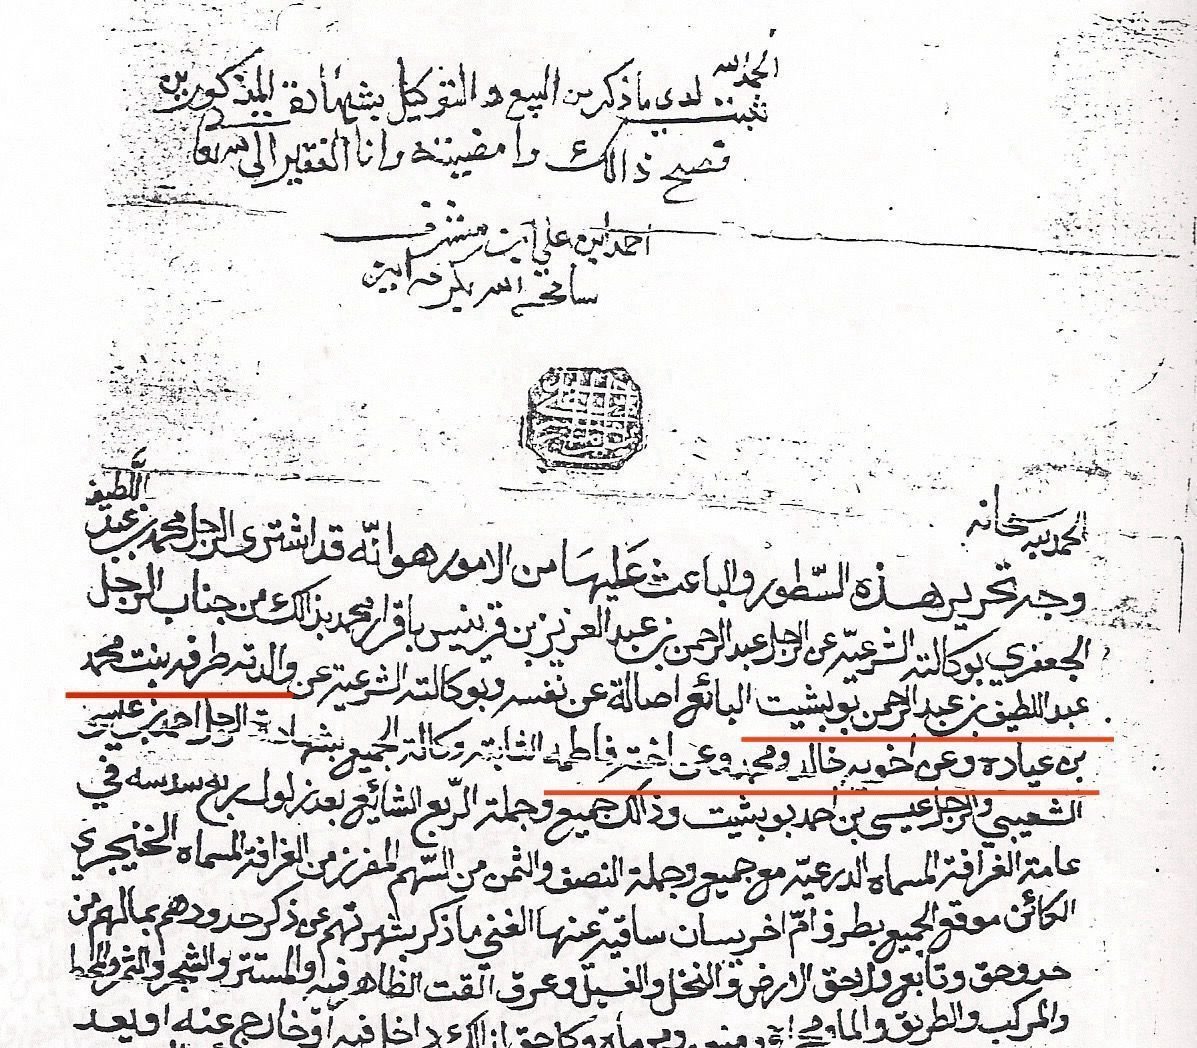 الحمد لله
ثبت لدى ما ذكر من البيع والتوكيل بشهادة المذكورين
فصح ذالك وامضيته وانا الفقير الى الله
احمد ابن علي ابن مشرف
سامحهم الله امين
الحمد لله سبحانه
وجه تحرير هذه السّطور والباعث عَليهَا من الامور هو انّه قد اشترى الرجل محمد بن عبد اللّطيف
الجعفري بوكالته الشرعيّة عن الرجل عبد الرحمن بن عبد العزيز بن قرينيس باقرار محمد بذالك من جناب الرجل
عبد اللطيف بن عبد الرحمن بو بشيت البائع اصالة عن نفسه وبوكالته الشرعية عن والدته طرفه بنت محمد
بن عياده وعن اخويه خالد ومحمد وعن اخته فاطمه الثابتة وكالة الجميع بشهادة الرجل احمد بن
الشعيبي والرجل عيسى بن احمد بو بشيت وذالك جميع وجملة الرّبع الشائع بعد نزول ربع سدسه في
عامة الغرافة المسماه الدرعيّه مع جميع وجملة النصف والثمن من السّهم المفرز من الغرافة المسماه الخنيجري
الكائن موقع الجميع بطرف امّ اخريسان ساقية عنها الغني ما ذكر بشهرتهم عن ذكر حدودهم بمالهم من
حد وحق وتابع ولاحق الارض والنخل والفسيل وعرق القت الظاهر فيه والمستتر والشجر والثمر والحط
والمركب والطريق والما وكل حق ذالك داخل فيه او خارج عنه او يعد